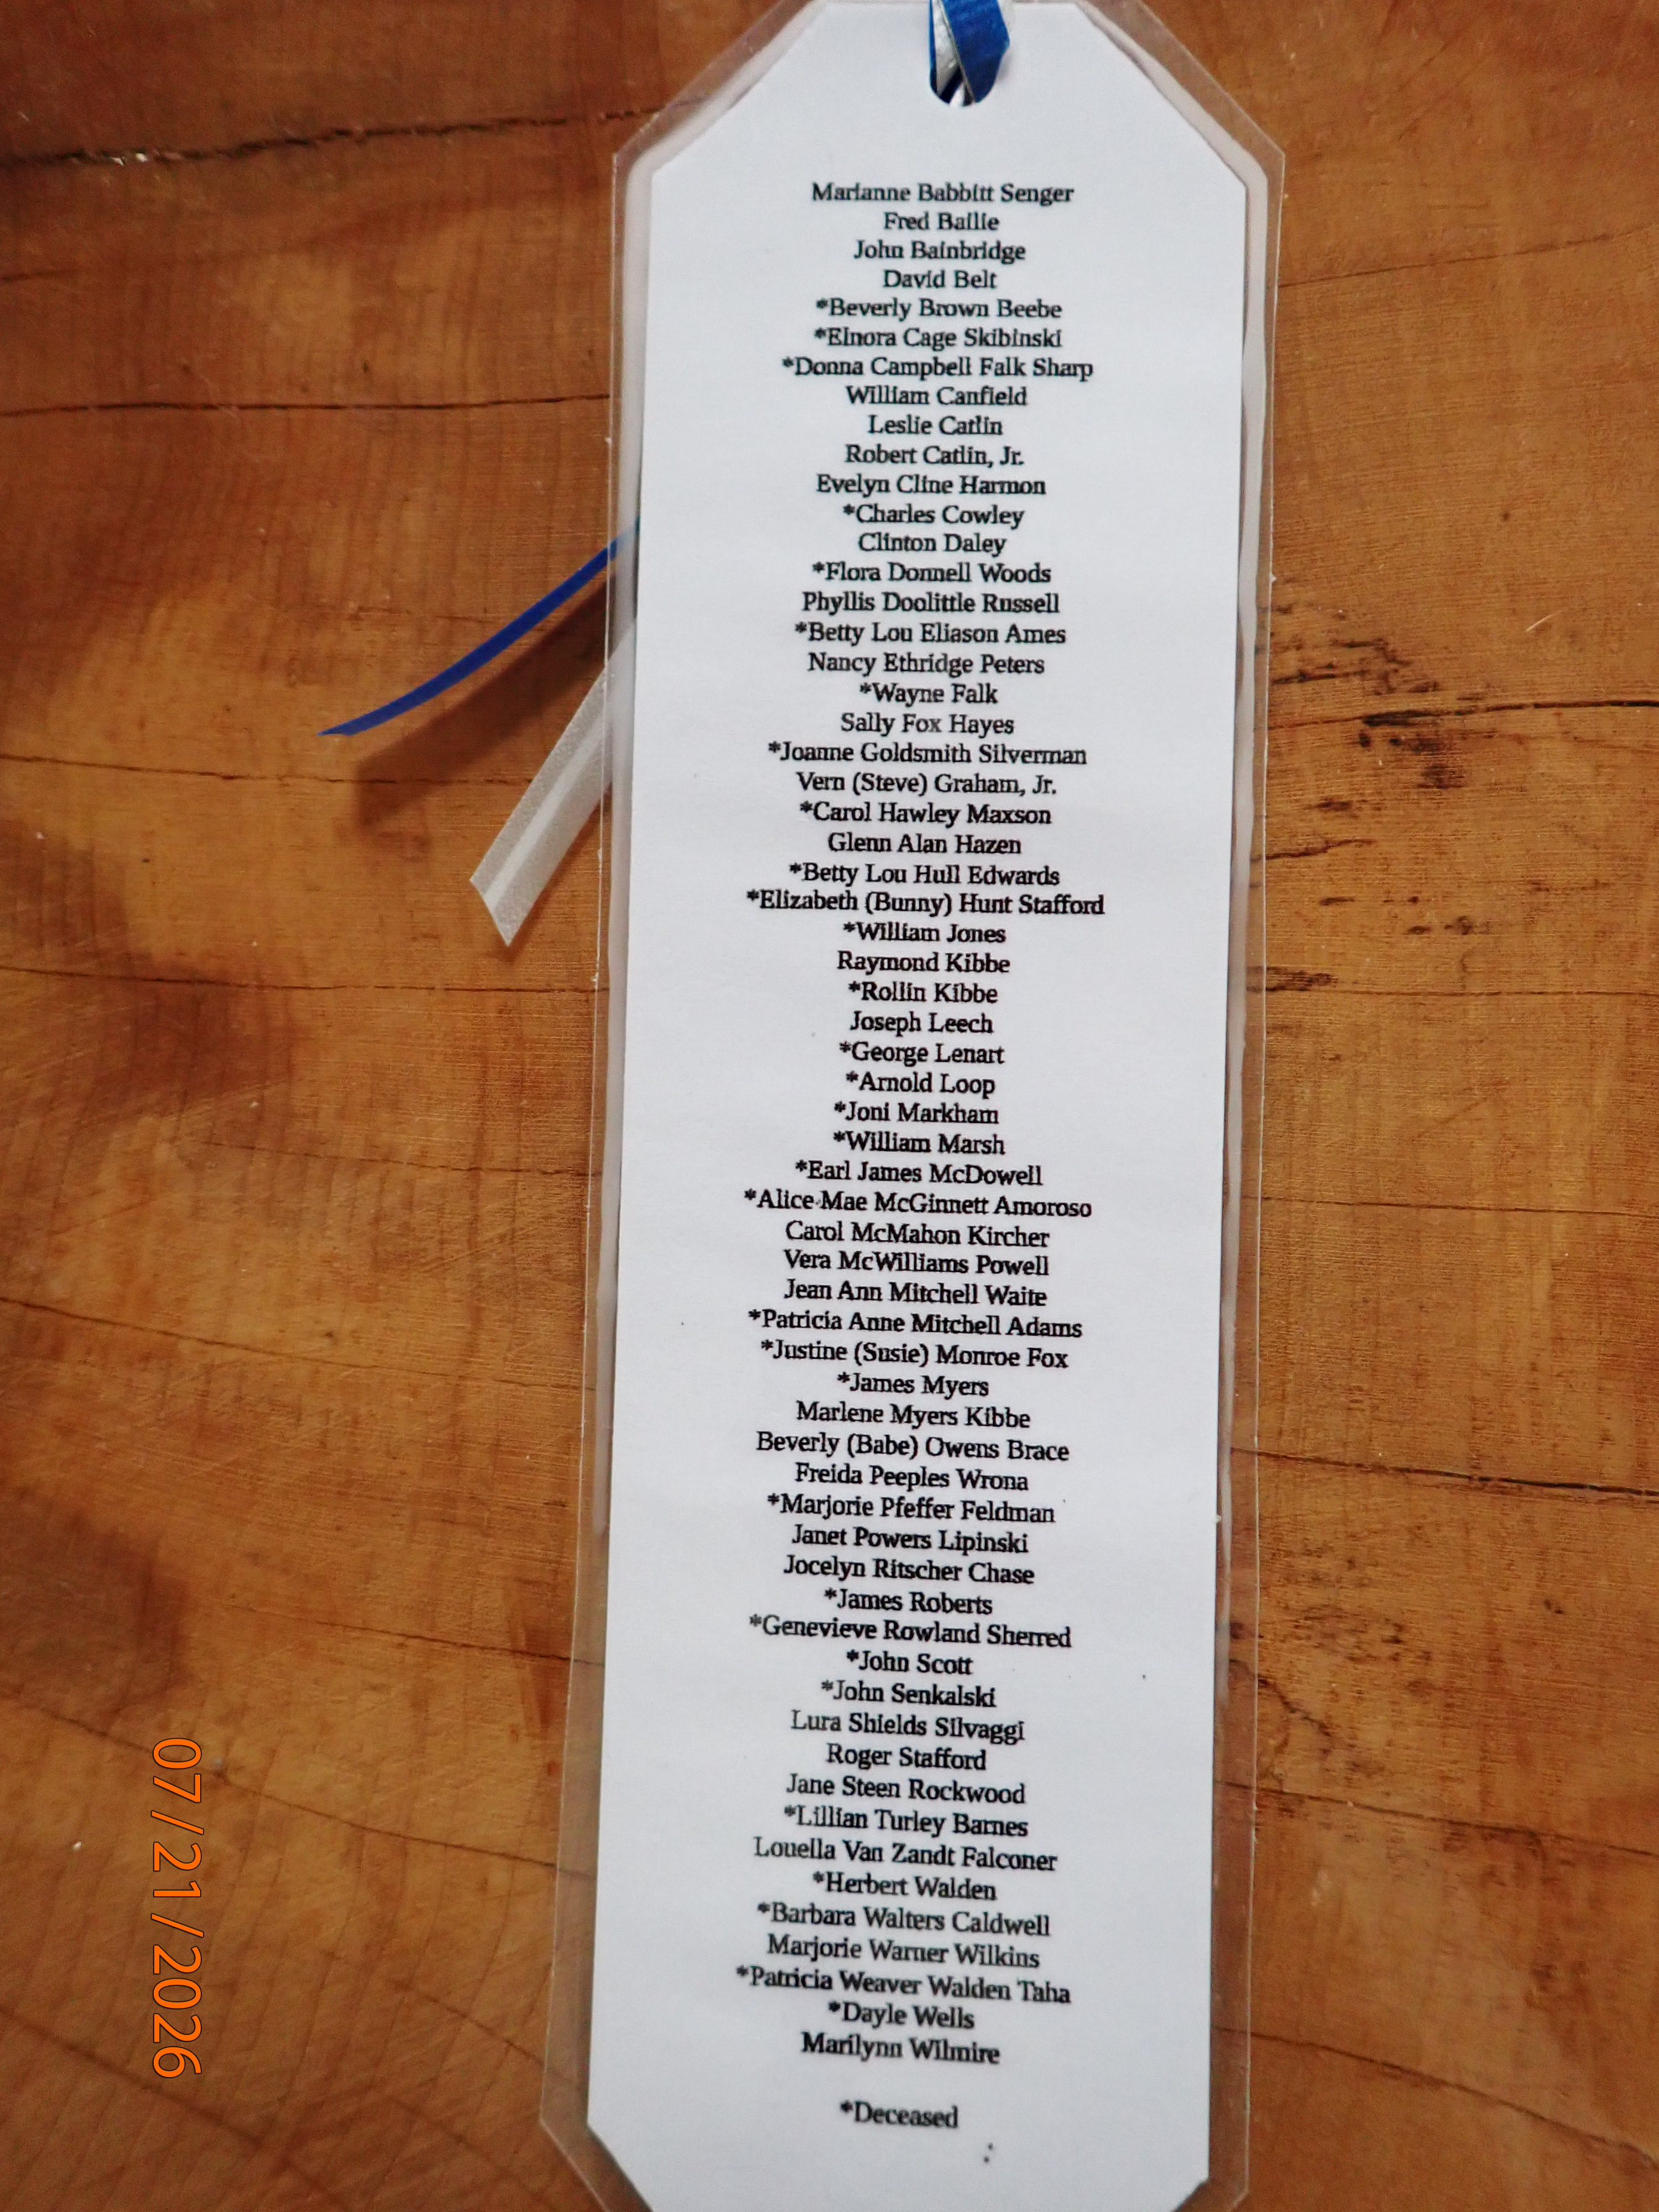 Marianne Babbitt Senger
Fred Baillie
John Bainbridge
David Belt
*Beverly Brown Beebe
*Elnora Cage Skibinski
*Donna Campbell Falk Sharp
William Canfield
Leslie Catlin
Robert Catlin, Jr.
Evelyn Cline Harmon
*Charles Cowley
Clinton Daley
*Flora Donnell Woods
Phyllis Doolittle Russell
*Betty Lou Eliason Ames
Nancy Ethridge Peters
*Wayne Falk
Sally Fox Hayes
*Joanne Goldsmith Silverman
Vern (Steve) Graham, Jr.
*Carol Hawley Maxson
Glenn Alan Hazen
*Betty Lou Hull Edwards
*Elizabeth (Bunny) Hunt Stafford
*William Jones
Raymond Kibbe
*Rollin Kibbe
Joseph Leech
*George Lenart
*Arnold Loop
*Joni Markham
*William Marsh
*Earl James McDowell
*Alice Mae McGinnett Amoroso
Carol McMahon Kircher
Vera McWilliams Powell
Jean Ann Mitchell Waite
*Patricia Anne Mitchell Adams
*Justine (Susie) Monroe Fox
*James Myers
Marlene Myers Kibbe
Beverly (Babe) Owens Brace
Freida Peeples Wrona
*Marjorie Pfeffer Feldman
Janet Powers Lipinski
Jocelyn Ritscher Chase
*James Roberts
*Genevieve Rowland Sherred
*John Scott
*John Senkalski
Lura Shields Silvaggi
Roger Stafford
Jane Steen Rockwood
*Lillian Turley Barnes
Louella Van Zandt Falconer
*Herbert Walden
*Barbara Walters Caldwell
Marjorie Warner Wilkins
*Patricia Weaver Walden Taha
*Dayle Wells
Marilynn Wilmire
*Deceased
07/21/2026